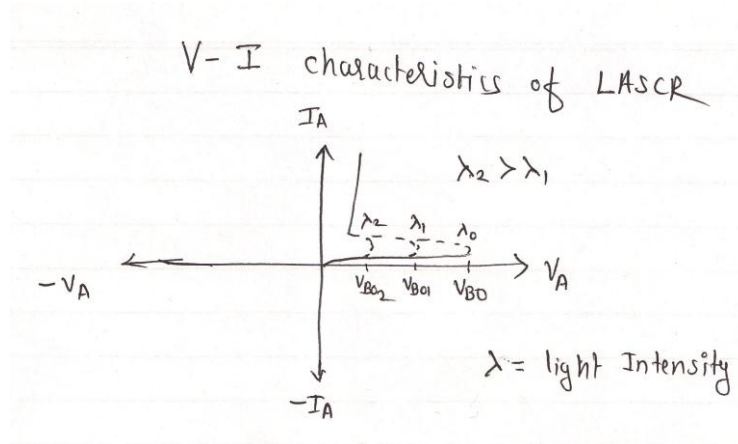 V-I characteristics of LASCR
IA
λ2 > λ1
λ2 λ1 λ0
-VA
VBO2 VBO1 VBO
VA
λ = light Intensity
-IA